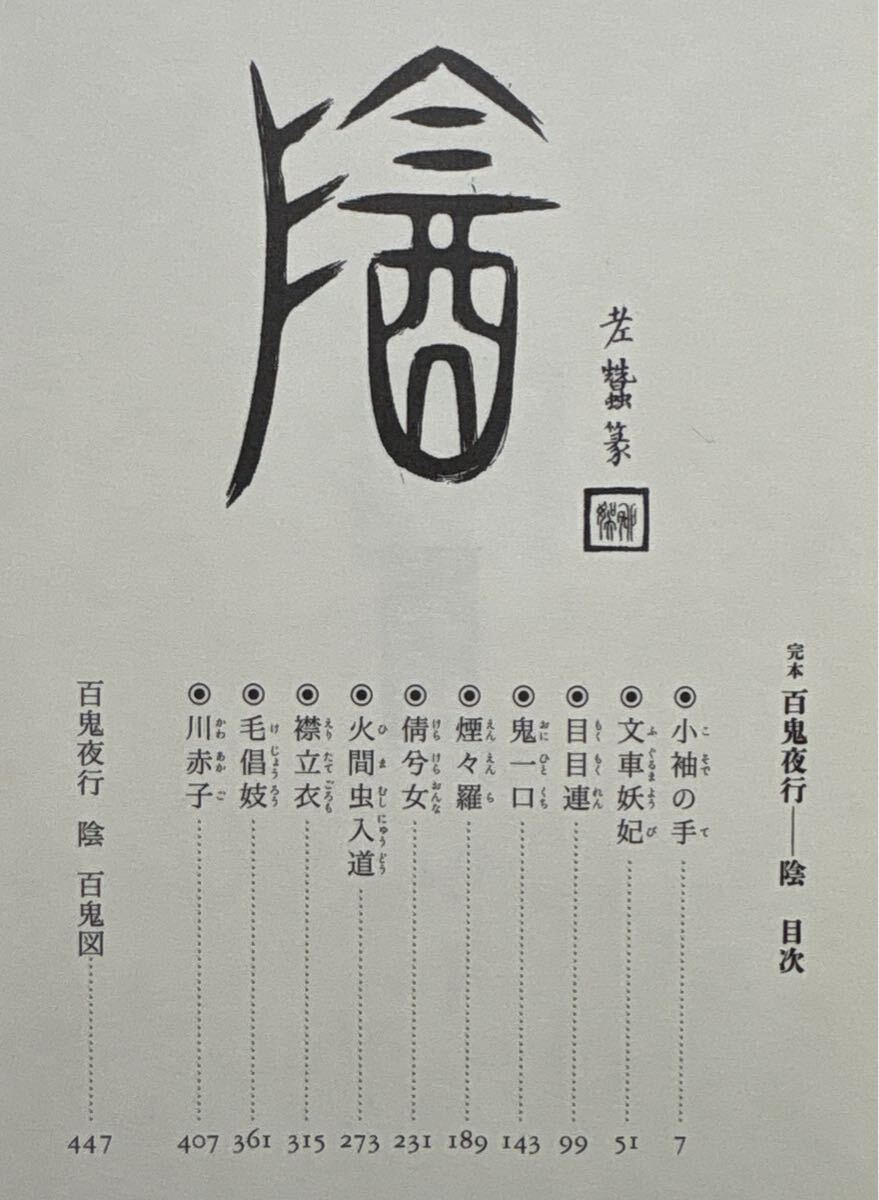 陰
老蠶篆
完本 百鬼夜行――陰 目次
◉小袖の手……7
こそでて
◉文車妖妃……51
ふぐるまようび
◉目目連……99
もくもくれん
◉鬼一口……143
おにひとくち
◉煙々羅……189
えんえんら
◉倩兮女……231
けらけらおんな
◉火間虫入道……273
ひまむしにゅうどう
◉襟立衣……315
えりたてごろも
◉毛倡妓……361
けじょうろう
◉川赤子……407
かわあかご
百鬼夜行 陰 百鬼図……447